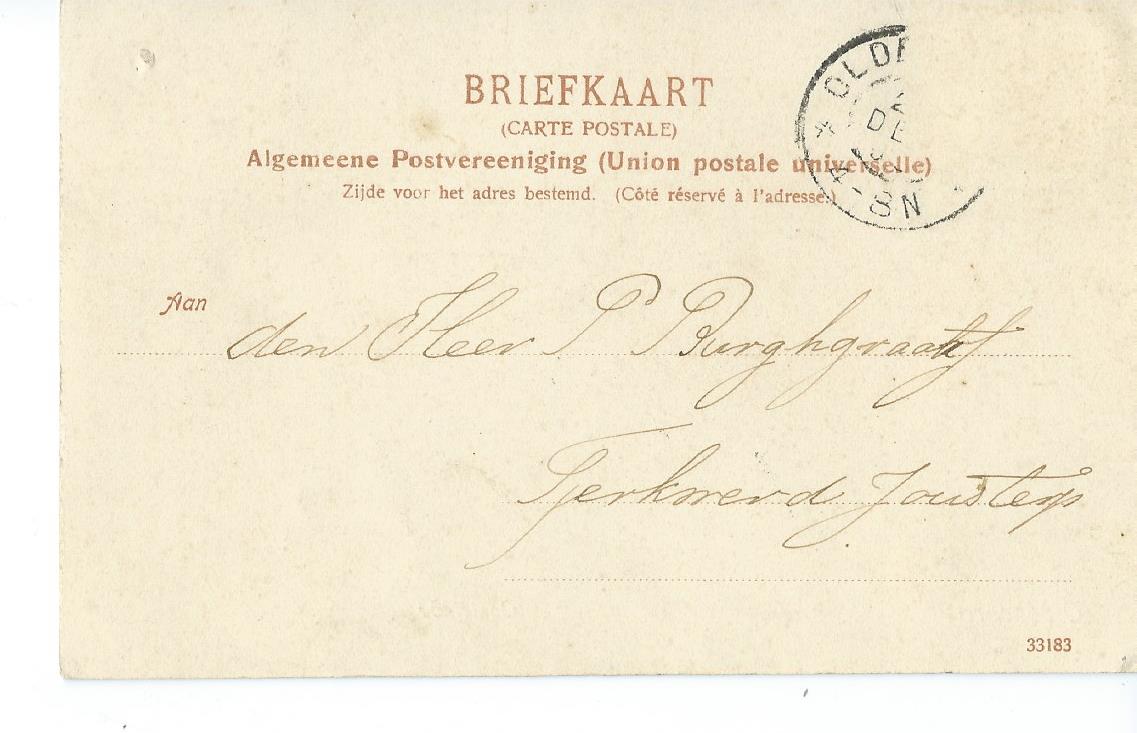 BRIEFKAART
(CARTE POSTALE)
Algemeene Postvereeniging (Union postale universelle)
Zijde voor het adres bestemd. (Côté réservé à l'adresse.)
OLDE
DE
4-8N
Aan
den Heer P Burghgraaff
Tjerkwerd Jousterp
33183